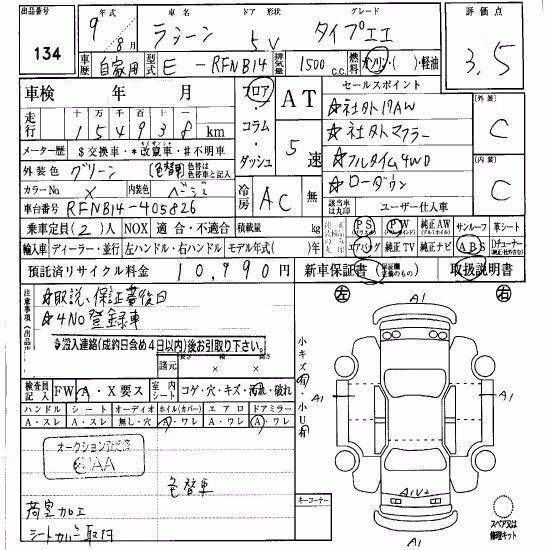 出品番号 年式 車名 ドア 形状 グレード 評価点
134 9年 8月 ラシーン 5 V タイプエエ 3.5
車歴 自家用 型式 E-RFNB14 排気量 1500 c.c. 燃料 ガソリン・( )・軽油
車検 年 月 フロア・コラム・ダッシュ AT 5速 セールスポイント 外装 C
☆社外17AW
走行 十万千百十一 154938 km ☆社外マフラー
メーター歴 $交換車・*改竄車・#不明車 ☆フルタイム4WD 内装 C
外装色 グリーン (色替車) 色替は色替車と記入 ☆ローダウン
カラーNo. X 内装色 ベージュ 冷房 AC 無 該当車は丸印 ユーザー仕入車
車台番号 RFNB14-405826
乗車定員 (2)人 NOX 適合・不適合 積載量 kg PS PW 純正AW サンルーフ 革シート
輸入車 ディーラー・並行 左ハンドル・右ハンドル モデル年式( )年 エアバッグ 純正TV 純正ナビ ABS
預託済リサイクル料金 10,990円 新車保証書 取扱説明書
注意事項 ☆取説、保証書後日
☆4NO登録車
☆搬入連絡(成約日含め4日以内)後お引取り下さい。
諸元 長さ 幅 高さ
× ×
検査員記入 FW A・X要ス 室内シート コゲ・穴・キズ・汚れ・破れ
ハンドル シート オーディオ ホイル(カバー) エアロ ドアミラー
A・スレ A・スレ 無し・穴 A・ワレ A・ワレ A・ワレ
オークション
CAA
色替車
荷室加工
シートカバー取付
小キズ有・小U有
キーコーナー
左 右
A1
A1
A1
A1V2
A1
スペア又は修理キット